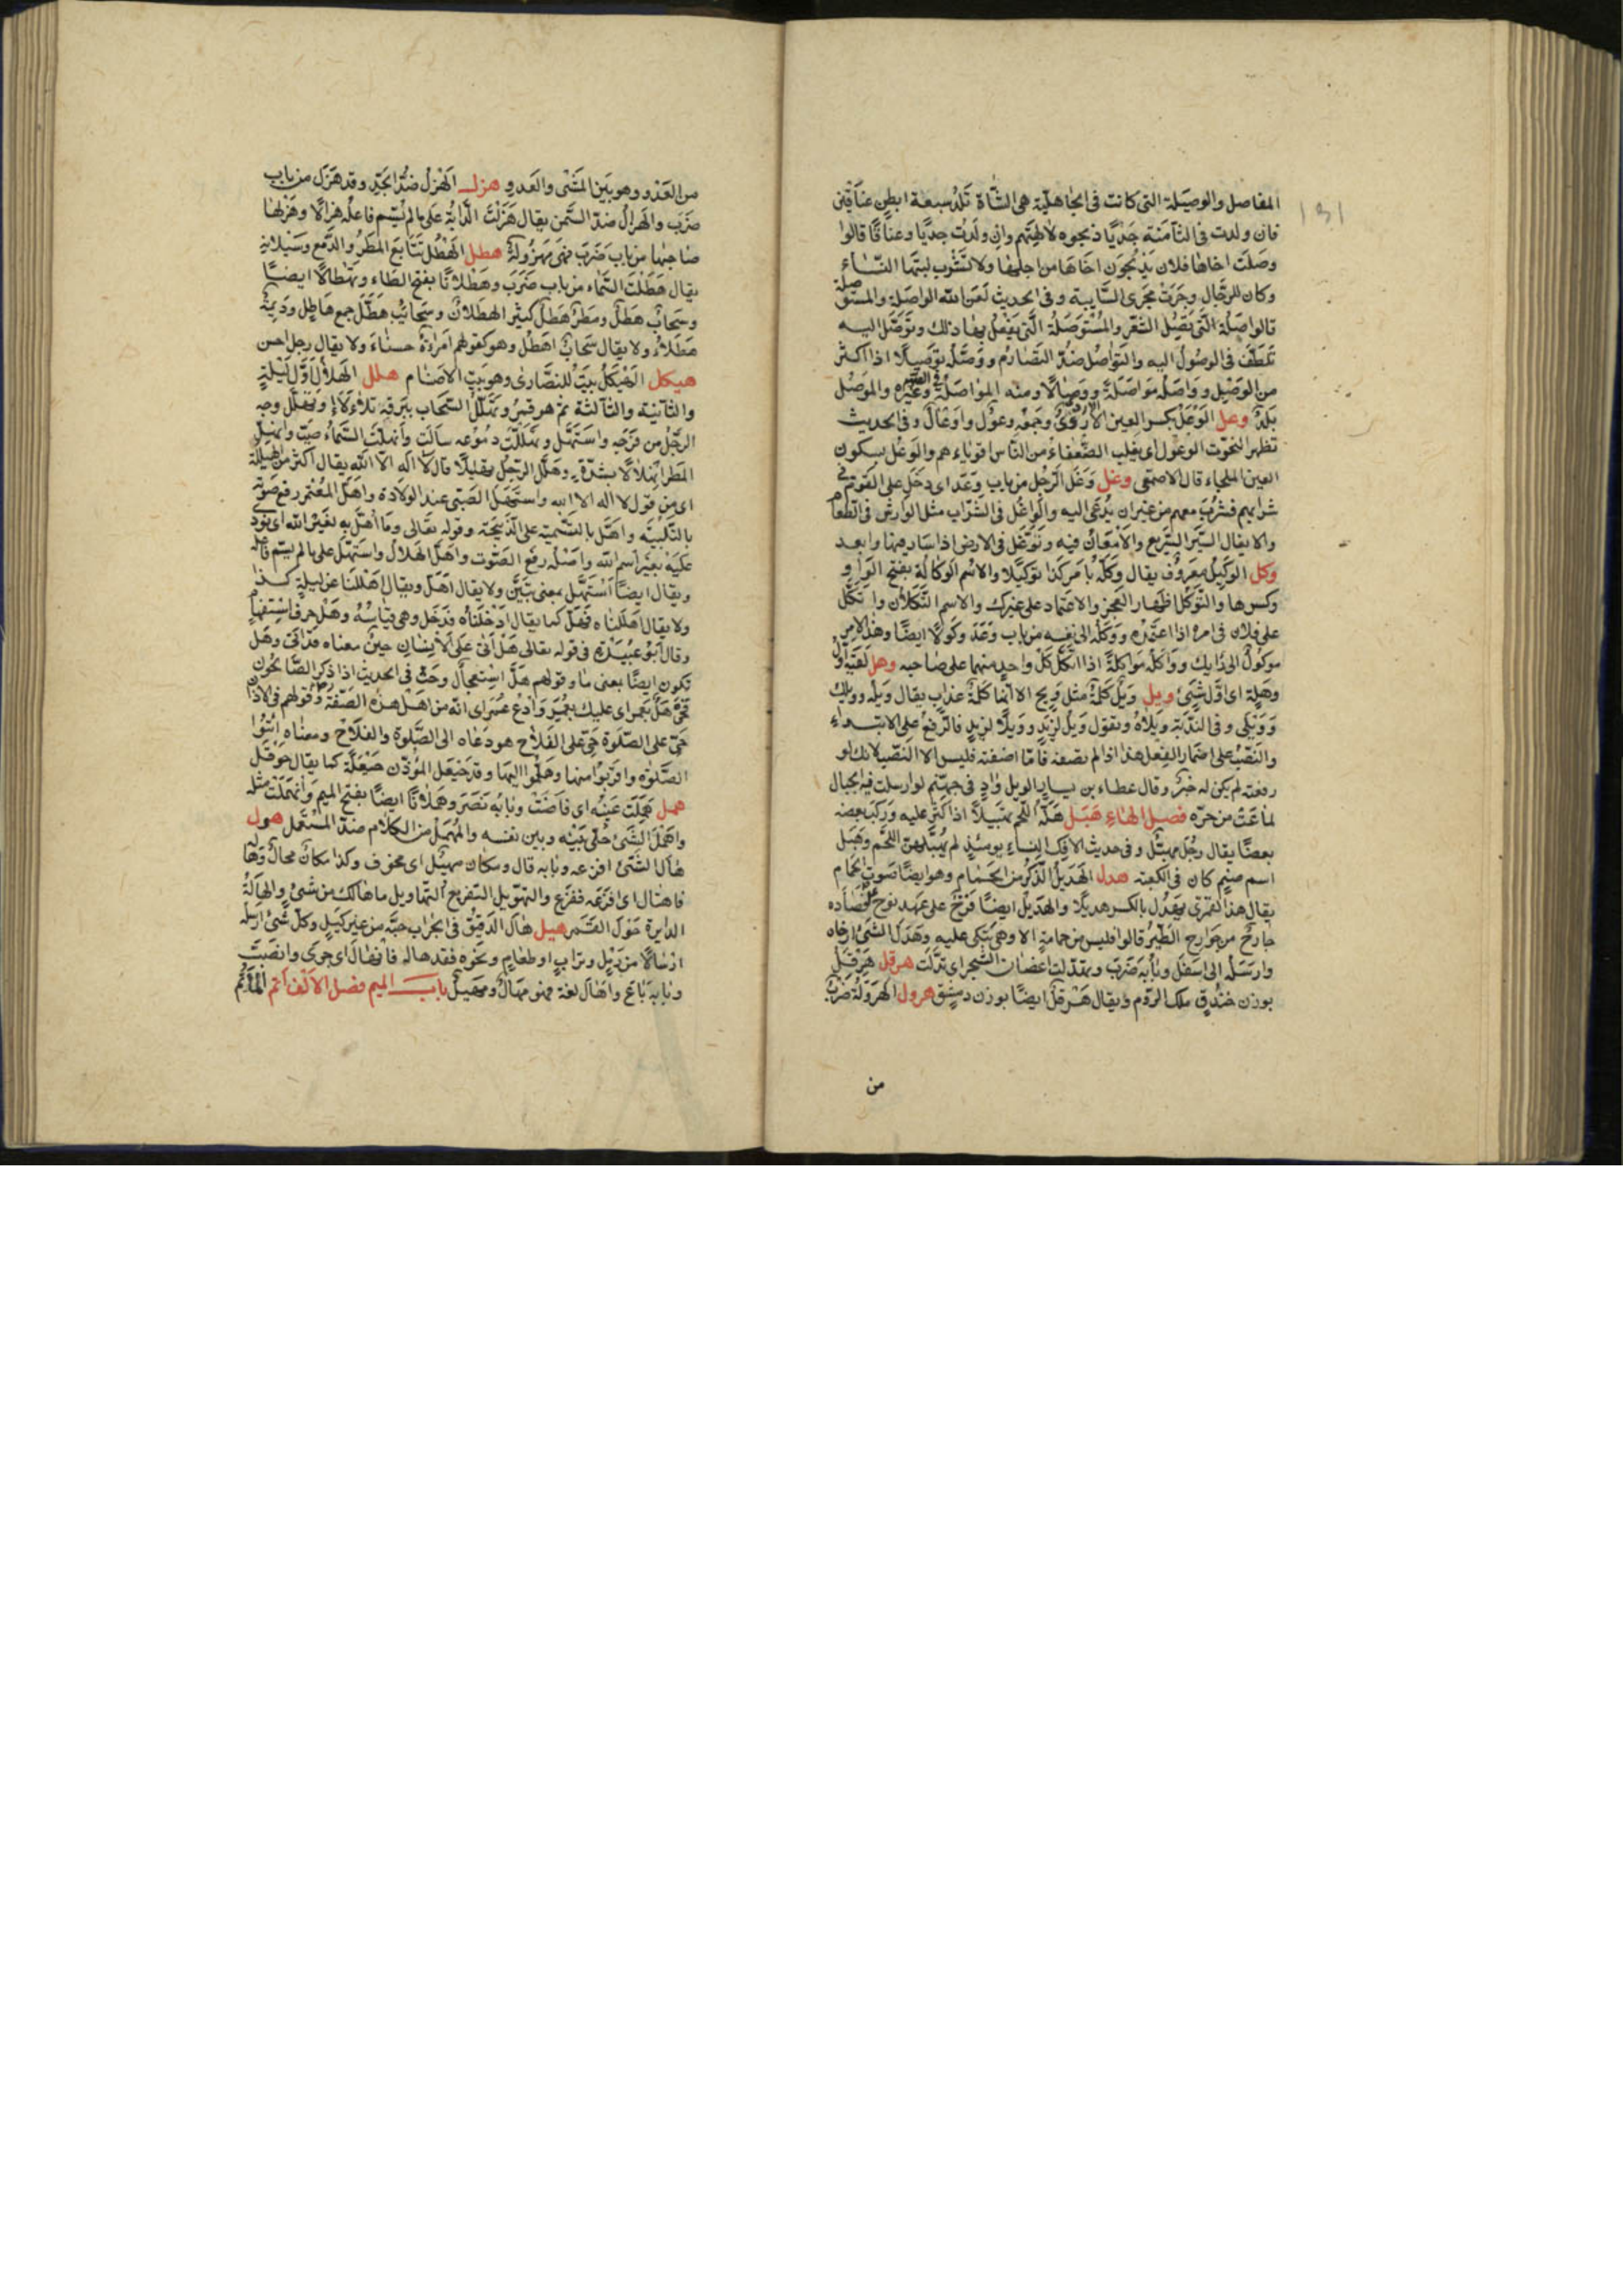 المفاصل والوصيلة التى كانت فى الجاهلية هى الشاة تلد سبعة ابطن عناقين
فان ولدت فى الثامنة جديا ذبحوه لالهتهم وان ولدت جديا وعناقا قالوا
وصلت اخاها فلا يذبحون اخاها من اجلها ولا تشرب لبنها النساء
وكان للرجال وجرت مجرى السايبة وفى الحديث لعن الله الواصلة والمستوصلة
فالواصلة التى تصل الشعر والمستوصلة التى يفعل بها ذلك وتوصل اليه
تلطف فى الوصول اليه والتواصل ضد التصارم ووصله توصيلا اذا اكثر
من الوصل وواصله مواصلة ووصالا ومنه المواصلة فى الصوم وغيره والموصل
بلد وعل الوعل بكسر العين الاروى وجمعه وعول واوعال وفى الحديث
تظهر التحوت الوعول اى يغلب الضعفاء من الناس اقوياءهم والوعل بسكون
العين الملجاء قال الاصمعى وغل وغل الرجل من باب وعد اى دخل على القوم فى
شرابهم فشرب معهم من غير ان يدعى اليه والواغل فى الشراب مثل الوارش فى الطعام
والايغال السير السريع والامعان فيه وتوغل فى الارض اذا سار فيها وابعد
وكل الوكيل معروف يقال وكله بامر كذا توكيلا والاسم الوكالة بفتح الواو
وكسرها والتوكل اظهار العجز والاعتماد على غيرك والاسم التكلان واتكل
على فلان فى امره اذا اعتمده ووكله الى نفسه من باب وعد وكولا ايضا وهذا الامر
موكول الى رايك وواكله مواكلة اذا اتكل كل واحد منهما على صاحبه وهل لقيته اول
وهلة اى اول شئ ويل ويل كلمة مثل ويح الا انها كلمة عذاب يقال ويله وويلك
وويلى وفى الندبة ويلاه وتقول ويل لزيد وويلا لزيد فالرفع على الابتداء
والنصب على اضمار الفعل هذا اذا لم تضفه فاما اضفته فليس الا النصب لانك لو
رفعته لم يكن له خبر وقال عطاء بن يسار الويل واد فى جهنم لو ارسلت فيه الجبال
لماعت من حره فصل الهاء هبل هبله اللحم تهبيلا اذا كثر عليه وركب بعضه
بعضا يقال رجل مهبل وفى حديث الافك النساء يومئذ لم يهبلهن اللحم وهبل
اسم صنم كان فى الكعبة هدل الهديل الذكر من الحمام وهو ايضا صوت الحمام
يقال هدل القمرى يهدل بالكسر هديلا والهديل ايضا فرخ على عهد نوح فصاده
جارح من جوارح الطير قالوا فليس من حمامة الا وهى تبكى عليه وهدل الشئ ارخاه
وارسله الى اسفل وبابه ضرب وتهدلت اغصان الشجر اى تدلت هرقل هرقل
بوزن خندق ملك الروم ويقال هرقل ايضا بوزن دمشق هرول الهرولة ضرب
من
من العدو وهو بين المشى والعدو هزل الهزل ضد الجد وقد هزل من باب
ضرب والهزال ضد السمن يقال هزلت الدابة على ما لم يسم فاعله هزالا وهزلها
صاحبها من باب ضرب فهى مهزولة هطل الهطل تتابع المطر والدمع وسيلانه
يقال هطلت السماء من باب ضرب وهطلانا بفتح الطاء وتهطالا ايضا
وسحاب هطل ومطر هطل كثير الهطلان وسحائب هطل جمع هاطل وديمة
هطلاء ولا يقال سحاب اهطل وهو كقولهم امراة حسناء ولا يقال رجل احسن
هيكل الهيكل بيت للنصارى وهو بيت الاصنام هلل الهلال اول ليلة
والثانية والثالثة ثم هو قمر وتهلل السحاب ببرقه تلألأ وتهلل وجه
الرجل من فرحه واستهل وتهللت دموعه سالت وانهلت السماء صبت وانهل
المطر انهلالا بشدة وهلل الرجل تهليلا قال لا اله الا الله يقال اكثر من الهيللة
اى من قول لا اله الا الله واستهل الصبى عند الولادة واهل المعتمر رفع صوته
بالتلبية واهل بالتسمية على الذبيحة وقوله تعالى وما اهل به لغير الله اى نودى
عليه بغير اسم الله واصله رفع الصوت واهل الهلال واستهل على ما لم يسم فاعله
ويقال ايضا استهل بمعنى تبين ولا يقال اهل ويقال اهللنا عن ليلة كذا
ولا يقال اهللناه فهل كما يقال ادخلناه فدخل وهى قياسه وهل حرف استفهام
وقال ابو عبيدة فى قوله تعالى هل اتى على الانسان حين معناه قد اتى وهل
تكون ايضا بمعنى ما وقولهم هلا استعجال وحث فى الحديث اذا ذكر الصالحون
فحى هل بعمر اى عليك بعمر وادع عمر اى انه من اهل هذه الصفة وقولهم فى الاذان
حى على الصلوة حى على الفلاح هو دعاه الى الصلوة والفلاح ومعناه ائتوا
الصلوة واقربوا منها وهلموا اليها وقد حيعل المؤذن حيعلة كما يقال حوقل
همل هملت عينه اى فاضت وبابه نصر وهملانا ايضا بفتح الميم وانهملت مثله
واهمل الشئ خلى بينه وبين نفسه والمهمل من الكلام ضد المستعمل هول
هاله الشئ افزعه وبابه قال ومكان مهيل اى مخوف وكذا مكان مهال وهاله
فاهتال اى افزعه ففزع والتهويل التفزيع التهاويل ما هالك من شئ والهالة
الدايرة حول القمر هيل هال الدقيق فى الجراب صبه من غير كيل وكل شئ ارسله
ارسالا من رمل وتراب او طعام ونحوه فقد هاله فانهال اى جرى وانصب
وبابه باع واهال لغة فهو مهال ومهيل باب الميم فصل الالف اتم المأتم